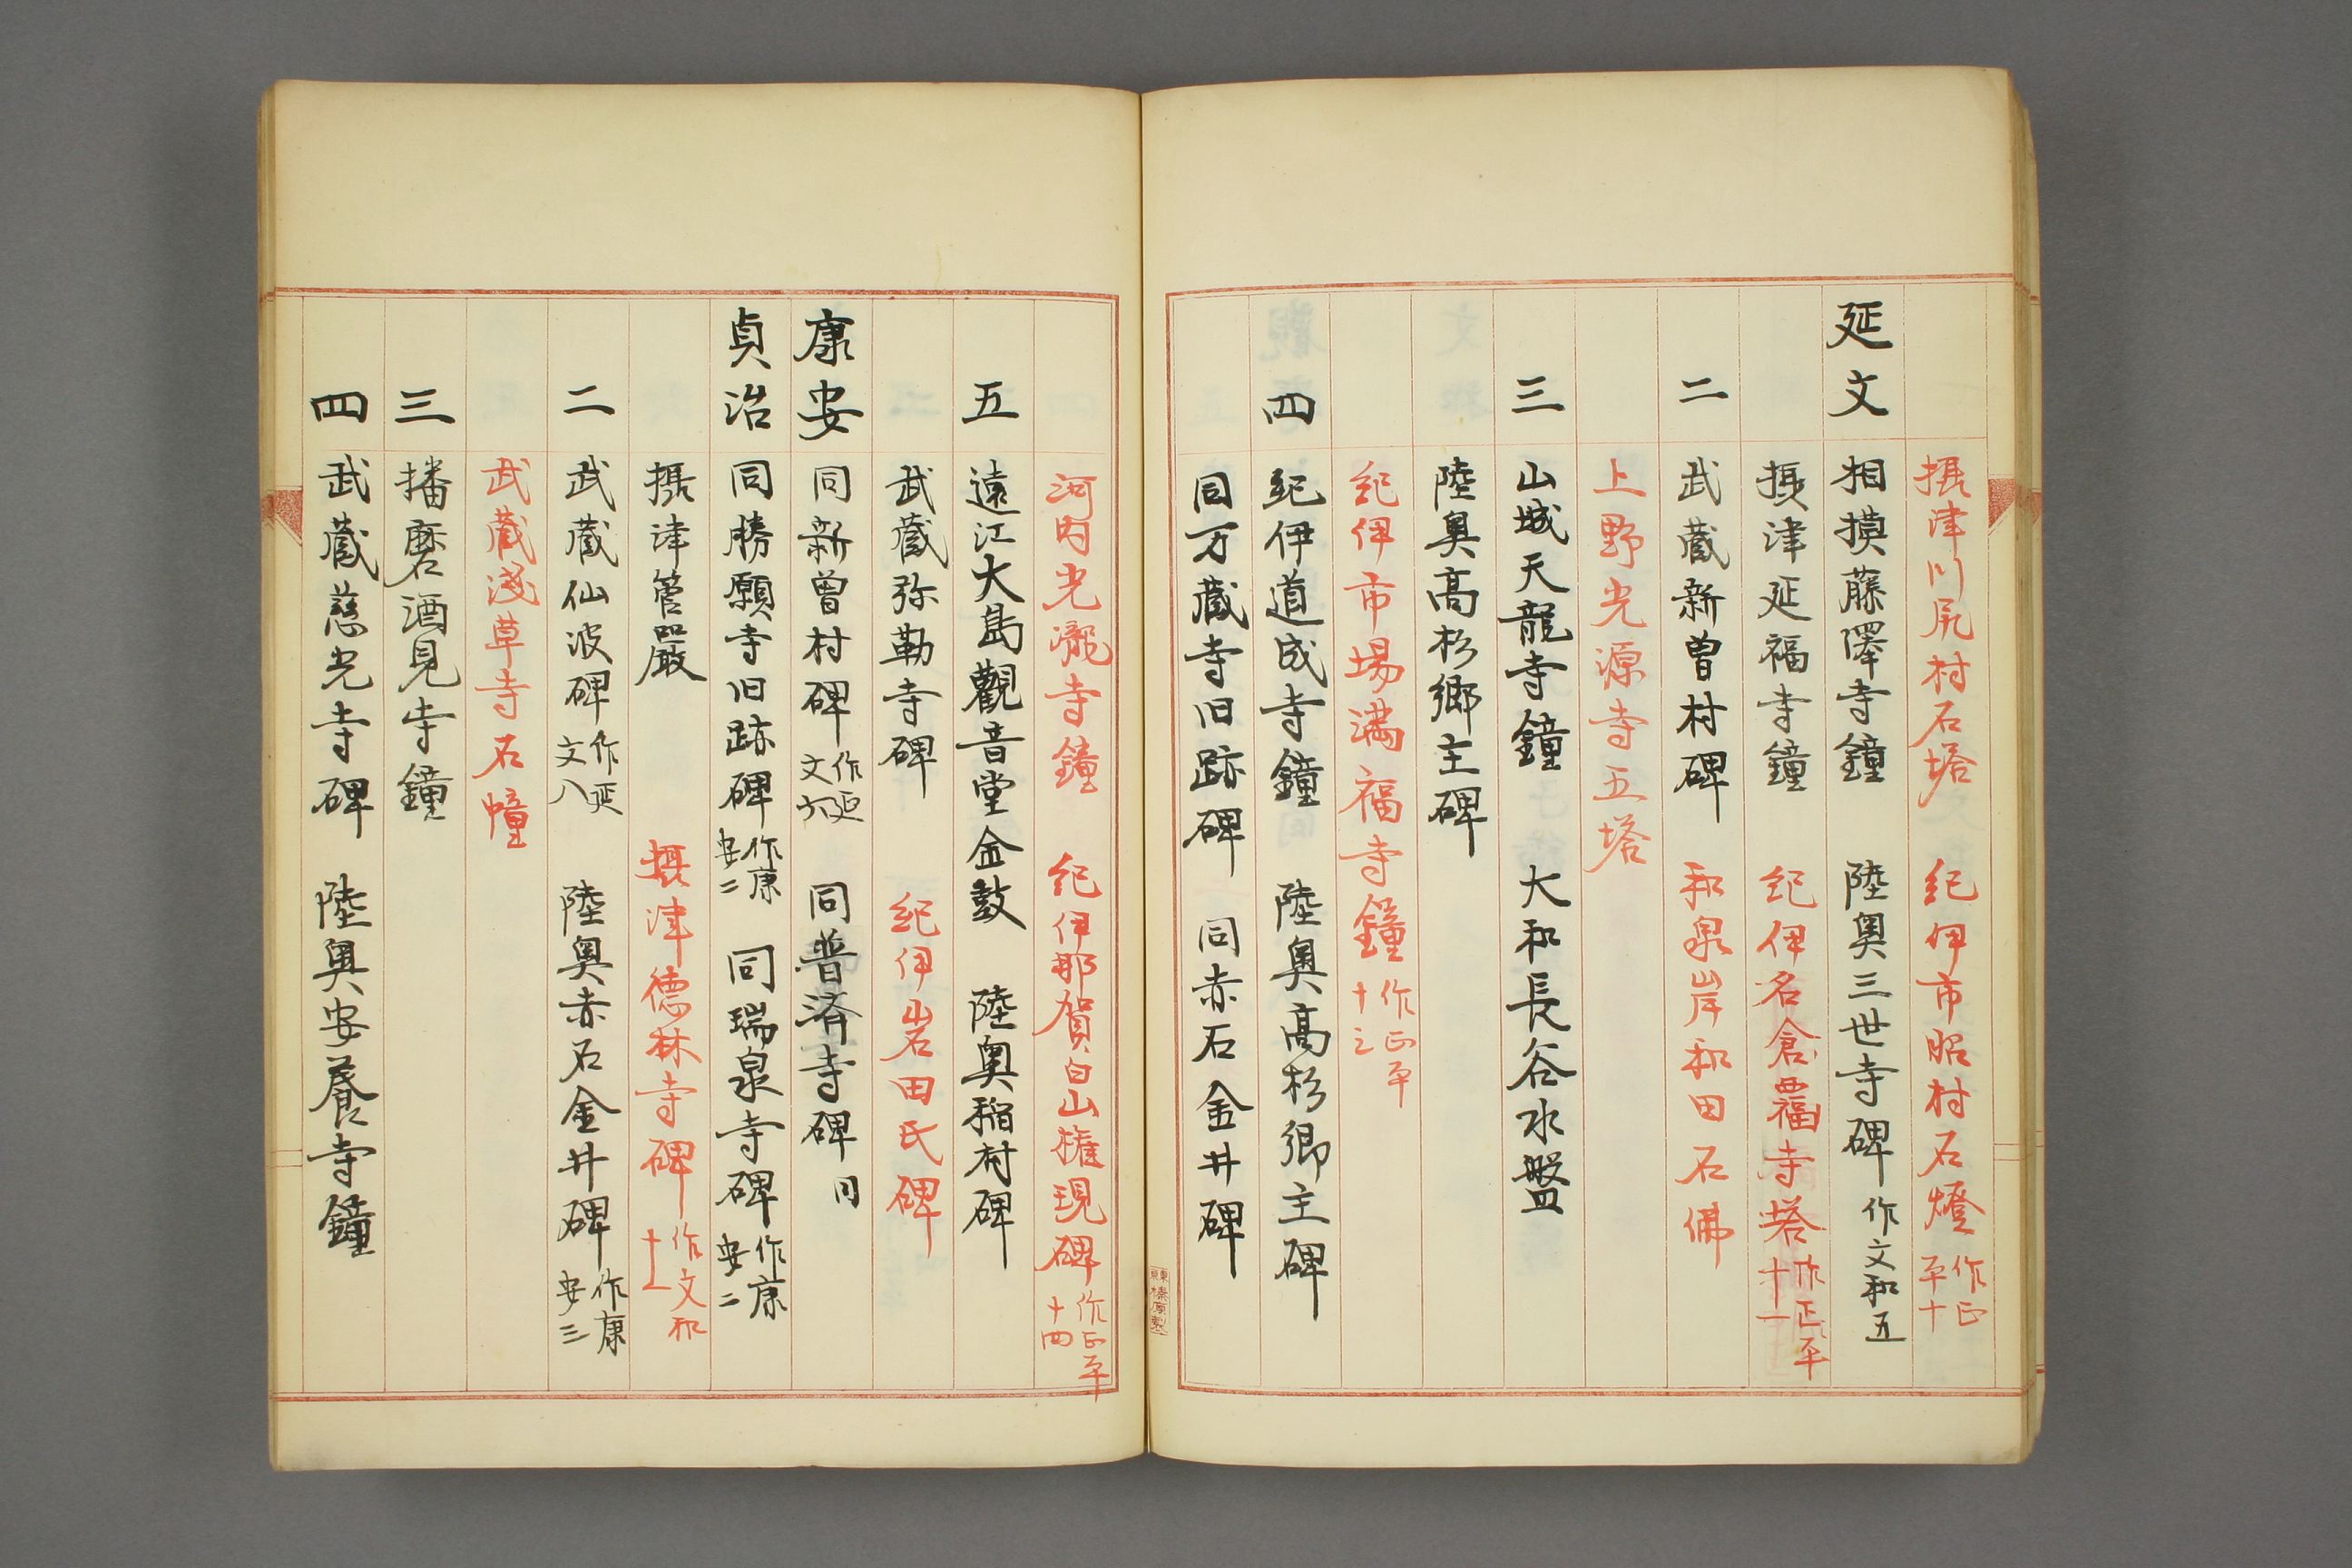 摂津川尻村石塔　紀伊市昭村石燈 作正平十
延文　相摸藤澤寺鐘　陸奥三世寺碑 作文和五
摂津延福寺鐘　紀伊名倉覀福寺塔 作正平十一
二　武蔵新曽村碑　和泉岸和田石佛
上野光源寺五塔
三　山城天龍寺鐘　大和長谷水盤
陸奥高杉郷主碑
紀伊市場満福寺鐘 作正平十三
四　紀伊道成寺鐘　陸奥高杉郷主碑
同万蔵寺旧跡碑　同赤石金井碑
東京榛原製
河内光瀧寺鐘　紀伊那賀白山権現碑 作正平十四
五　遠江大島觀音堂金鼓　陸奥稲村碑
武蔵弥勒寺碑　紀伊岩田氏碑
康安　同新曽村碑 作延文六　同普済寺碑 同
貞治　同勝願寺旧跡碑 作康安二　同瑞泉寺碑 作康安二
摂津菅嚴　摂津德林寺碑 作文和十一
二　武蔵仙波碑 作延文八　陸奥赤石金井碑 作康安三
武蔵浅草寺石幢
三　播磨酒見寺鐘
四　武蔵慈光寺碑　陸奥安養寺鐘